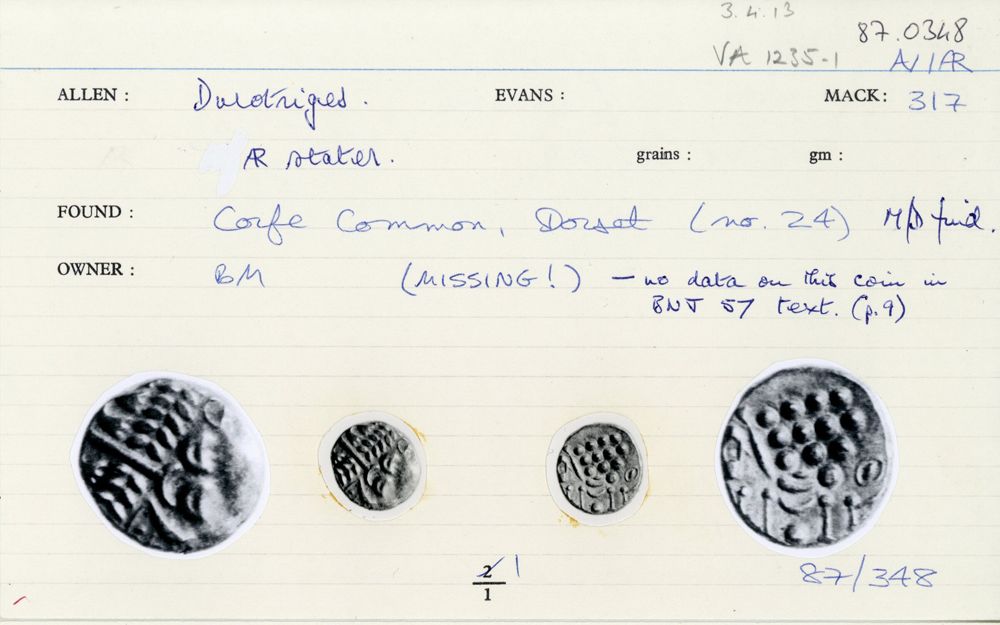 3.4.13
87.0348
VA 1235-1 AV/AR
ALLEN : Durotriges. EVANS : MACK: 317
AR stater. grains : gm :
FOUND : Corfe Common, Dorset (no. 24) M/D find.
OWNER : BM (MISSING!) — no data on this coin in
BNJ 57 text. (p.9)
2 1
1
87/348